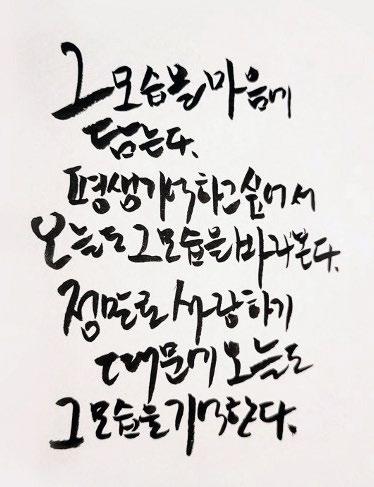 그 모습을 마음에
담는다.
평생 기억하고 싶어서
오늘도 그 모습을 바라본다.
정말로 사랑하기
때문에 오늘도
그 모습을 기억한다.